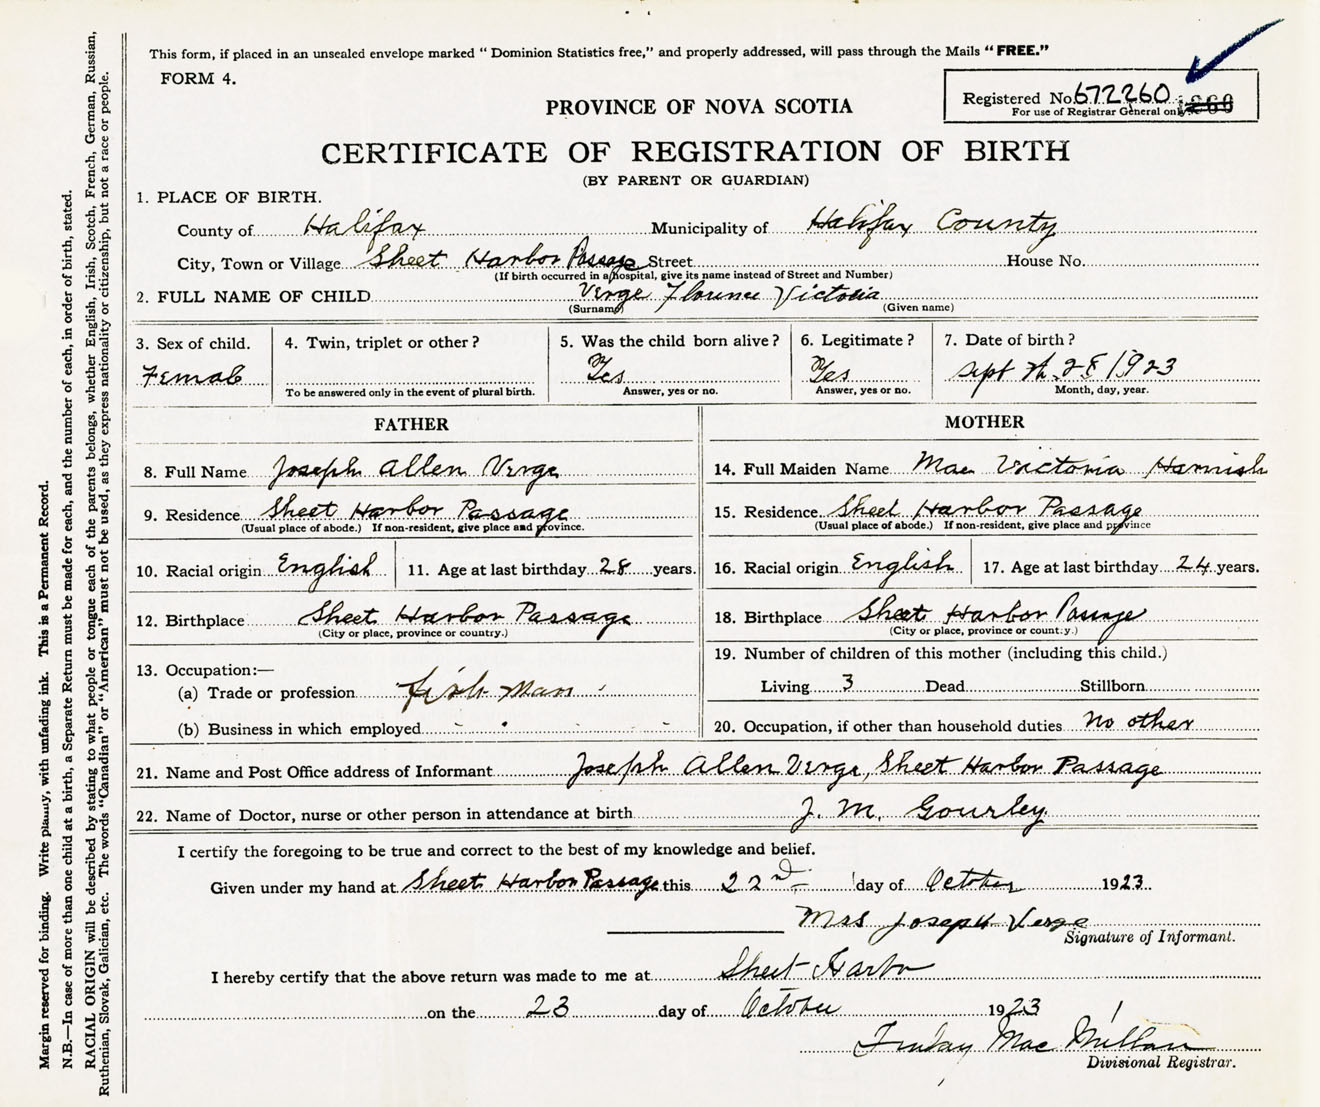 This form, if placed in an unsealed envelope marked " Dominion Statistics free," and properly addressed, will pass through the Mails "FREE."
FORM 4.
Registered No. 672260
For use of Registrar General only.
PROVINCE OF NOVA SCOTIA
CERTIFICATE OF REGISTRATION OF BIRTH
(BY PARENT OR GUARDIAN)
1. PLACE OF BIRTH.
County of Halifax Municipality of Halifax County
City, Town or Village Sheet Harbor Passage Street House No.
(If birth occurred in a hospital, give its name instead of Street and Number)
2. FULL NAME OF CHILD Verge Florence Victoria
(Surname) (Given name)
3. Sex of child. 4. Twin, triplet or other? 5. Was the child born alive? 6. Legitimate? 7. Date of birth?
Female Yes Yes Sept th 28 1923
To be answered only in the event of plural birth. Answer, yes or no. Answer, yes or no. Month, day, year.
FATHER
8. Full Name Joseph Allen Verge
9. Residence Sheet Harbor Passage
(Usual place of abode.) If non-resident, give place and province.
10. Racial origin English 11. Age at last birthday 28 years.
12. Birthplace Sheet Harbor Passage
(City or place, province or country.)
13. Occupation:—
(a) Trade or profession fish man
(b) Business in which employed
MOTHER
14. Full Maiden Name Mae Victoria Harnish
15. Residence Sheet Harbor Passage
(Usual place of abode.) If non-resident, give place and province
16. Racial origin English 17. Age at last birthday 24 years.
18. Birthplace Sheet Harbor Passage
(City or place, province or country.)
19. Number of children of this mother (including this child.)
Living 3 Dead Stillborn
20. Occupation, if other than household duties no other
21. Name and Post Office address of Informant Joseph Allen Verge, Sheet Harbor Passage
22. Name of Doctor, nurse or other person in attendance at birth J. M. Gourley
I certify the foregoing to be true and correct to the best of my knowledge and belief.
Given under my hand at Sheet Harbor Passage this 22nd day of October 1923
Mrs Joseph Verge
Signature of Informant.
I hereby certify that the above return was made to me at Sheet Harbor
on the 23 day of October 1923
Finlay MacMillan
Divisional Registrar.
Margin reserved for binding. Write plainly, with unfading ink. This is a Permanent Record.
N.B.—In case of more than one child at a birth, a Separate Return must be made for each, and the number of each, in order of birth, stated.
RACIAL ORIGIN will be described by stating to what people or tongue each of the parents belongs, whether English, Irish, Scotch, French, German, Russian,
Ruthenian, Slovak, Galician, etc. The words "Canadian" or "American" must not be used, as they express nationality or citizenship, but not a race or people.